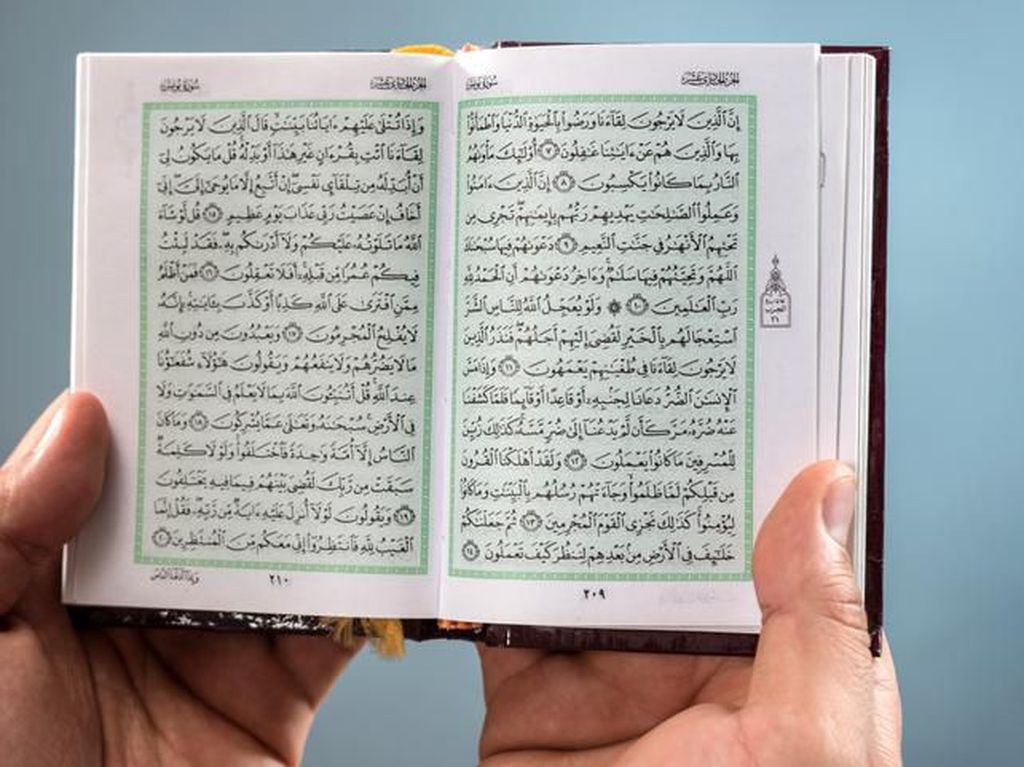 الجزء الحادي عشر
سورة يونس
إِنَّ ٱلَّذِينَ لَا يَرْجُونَ لِقَآءَنَا وَرَضُوا۟ بِٱلْحَيَوٰةِ ٱلدُّنْيَا وَٱطْمَأَنُّوا۟
بِهَا وَٱلَّذِينَ هُمْ عَنْ ءَايَٰتِنَا غَٰفِلُونَ ٧ أُو۟لَٰٓئِكَ مَأْوَىٰهُمُ
ٱلنَّارُ بِمَا كَانُوا۟ يَكْسِبُونَ ٨ إِنَّ ٱلَّذِينَ ءَامَنُوا۟
وَعَمِلُوا۟ ٱلصَّٰلِحَٰتِ يَهْدِيهِمْ رَبُّهُم بِإِيمَٰنِهِمْ تَجْرِى مِن
تَحْتِهِمُ ٱلْأَنْهَٰرُ فِى جَنَّٰتِ ٱلنَّعِيمِ ٩ دَعْوَىٰهُمْ فِيهَا سُبْحَٰنَكَ
ٱللَّهُمَّ وَتَحِيَّتُهُمْ فِيهَا سَلَٰمٌ وَءَاخِرُ دَعْوَىٰهُمْ أَنِ ٱلْحَمْدُ لِلَّهِ
رَبِّ ٱلْعَٰلَمِينَ ١٠ ۞ وَلَوْ يُعَجِّلُ ٱللَّهُ لِلنَّاسِ ٱلشَّرَّ
ٱسْتِعْجَالَهُم بِٱلْخَيْرِ لَقُضِىَ إِلَيْهِمْ أَجَلُهُمْ فَنَذَرُ ٱلَّذِينَ
لَا يَرْجُونَ لِقَآءَنَا فِى طُغْيَٰنِهِمْ يَعْمَهُونَ ١١ وَإِذَا مَسَّ
ٱلْإِنسَٰنَ ٱلضُّرُّ دَعَانَا لِجَنۢبِهِۦٓ أَوْ قَاعِدًا أَوْ قَآئِمًا فَلَمَّا كَشَفْنَا
عَنْهُ ضُرَّهُۥ مَرَّ كَأَن لَّمْ يَدْعُنَآ إِلَىٰ ضُرٍّ مَّسَّهُۥ كَذَٰلِكَ زُيِّنَ
لِلْمُسْرِفِينَ مَا كَانُوا۟ يَعْمَلُونَ ١٢ وَلَقَدْ أَهْلَكْنَا ٱلْقُرُونَ
مِن قَبْلِكُمْ لَمَّا ظَلَمُوا۟ وَجَآءَتْهُمْ رُسُلُهُم بِٱلْبَيِّنَٰتِ وَمَا كَانُوا۟
لِيُؤْمِنُوا۟ كَذَٰلِكَ نَجْزِى ٱلْقَوْمَ ٱلْمُجْرِمِينَ ١٣ ثُمَّ جَعَلْنَٰكُمْ
خَلَٰٓئِفَ فِى ٱلْأَرْضِ مِنۢ بَعْدِهِمْ لِنَنظُرَ كَيْفَ تَعْمَلُونَ ١٤
٢٠٩
الحزب
٢١
الجزء الحادي عشر
سورة يونس
وَإِذَا تُتْلَىٰ عَلَيْهِمْ ءَايَاتُنَا بَيِّنَٰتٍ قَالَ ٱلَّذِينَ لَا يَرْجُونَ
لِقَآءَنَا ٱئْتِ بِقُرْءَانٍ غَيْرِ هَٰذَآ أَوْ بَدِّلْهُ قُلْ مَا يَكُونُ لِىٓ
أَنْ أُبَدِّلَهُۥ مِن تِلْقَآئِ نَفْسِىٓ إِنْ أَتَّبِعُ إِلَّا مَا يُوحَىٰٓ إِلَىَّ إِنِّىٓ
أَخَافُ إِنْ عَصَيْتُ رَبِّى عَذَابَ يَوْمٍ عَظِيمٍ ١٥ قُل لَّوْ شَآءَ
ٱللَّهُ مَا تَلَوْتُهُۥ عَلَيْكُمْ وَلَآ أَدْرَىٰكُم بِهِۦ فَقَدْ لَبِثْتُ
فِيكُمْ عُمُرًا مِّن قَبْلِهِۦٓ أَفَلَا تَعْقِلُونَ ١٦ فَمَنْ أَظْلَمُ
مِمَّنِ ٱفْتَرَىٰ عَلَى ٱللَّهِ كَذِبًا أَوْ كَذَّبَ بِـَٔايَٰتِهِۦٓ إِنَّهُۥ
لَا يُفْلِحُ ٱلْمُجْرِمُونَ ١٧ وَيَعْبُدُونَ مِن دُونِ ٱللَّهِ
مَا لَا يَضُرُّهُمْ وَلَا يَنفَعُهُمْ وَيَقُولُونَ هَٰٓؤُلَآءِ شُفَعَٰٓؤُنَا
عِندَ ٱللَّهِ قُلْ أَتُنَبِّـُٔونَ ٱللَّهَ بِمَا لَا يَعْلَمُ فِى ٱلسَّمَٰوَٰتِ وَلَا
فِى ٱلْأَرْضِ سُبْحَٰنَهُۥ وَتَعَٰلَىٰ عَمَّا يُشْرِكُونَ ١٨ وَمَا كَانَ
ٱلنَّاسُ إِلَّآ أُمَّةً وَٰحِدَةً فَٱخْتَلَفُوا۟ وَلَوْلَا كَلِمَةٌ
سَبَقَتْ مِن رَّبِّكَ لَقُضِىَ بَيْنَهُمْ فِيمَا فِيهِ يَخْتَلِفُونَ
١٩ وَيَقُولُونَ لَوْلَآ أُنزِلَ عَلَيْهِ ءَايَةٌ مِّن رَّبِّهِۦ فَقُلْ إِنَّمَا
ٱلْغَيْبُ لِلَّهِ فَٱنتَظِرُوٓا۟ إِنِّى مَعَكُم مِّنَ ٱلْمُنتَظِرِينَ ٢٠
٢١٠